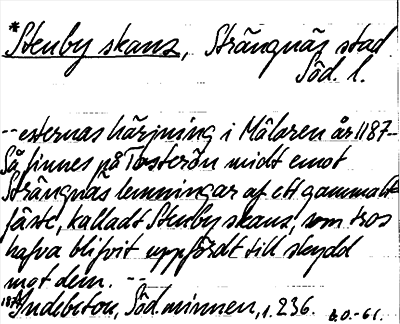 *Stenby skans, Strängnäs stad
Söd. l.
-- esternas härjning i Mälaren år 1187 --
Så finnes på Tosterön midt emot
Strängnäs lemningar af ett gammalt
fäste, kalladt Stenby skans, som tros
hafva blifvit uppfördt till skydd
mot dem. --
1877 Indebetou, Söd. minnen, s. 236. B.O.-61.